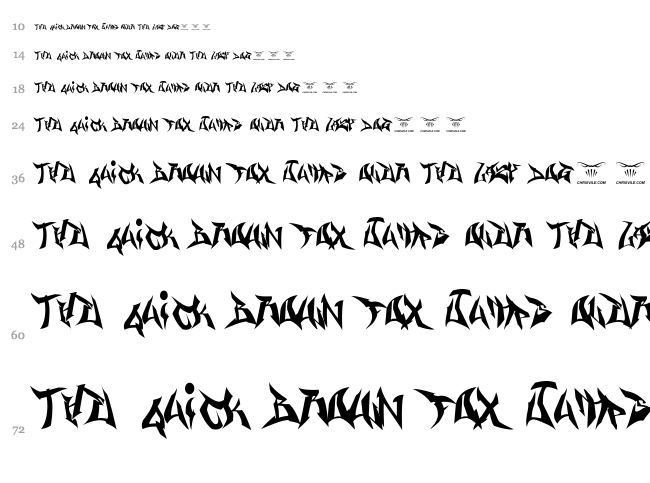 10 The Quick Brown Fox Jumps Over The Lazy Dog
14 The Quick Brown Fox Jumps Over The Lazy Dog
18 The Quick Brown Fox Jumps Over The Lazy Dog CHRISVILE.COM
24 The Quick Brown Fox Jumps Over The Lazy Dog CHRISVILE.COM CHRISVILE.COM CHRISVILE.COM
36 The Quick Brown Fox Jumps Over The Lazy Dog CHRISVILE.COM CHRISVILE.COM
48 The Quick Brown Fox Jumps Over The
60 The Quick Brown Fox Jumps
72 The Quick Brown Fox Jumps